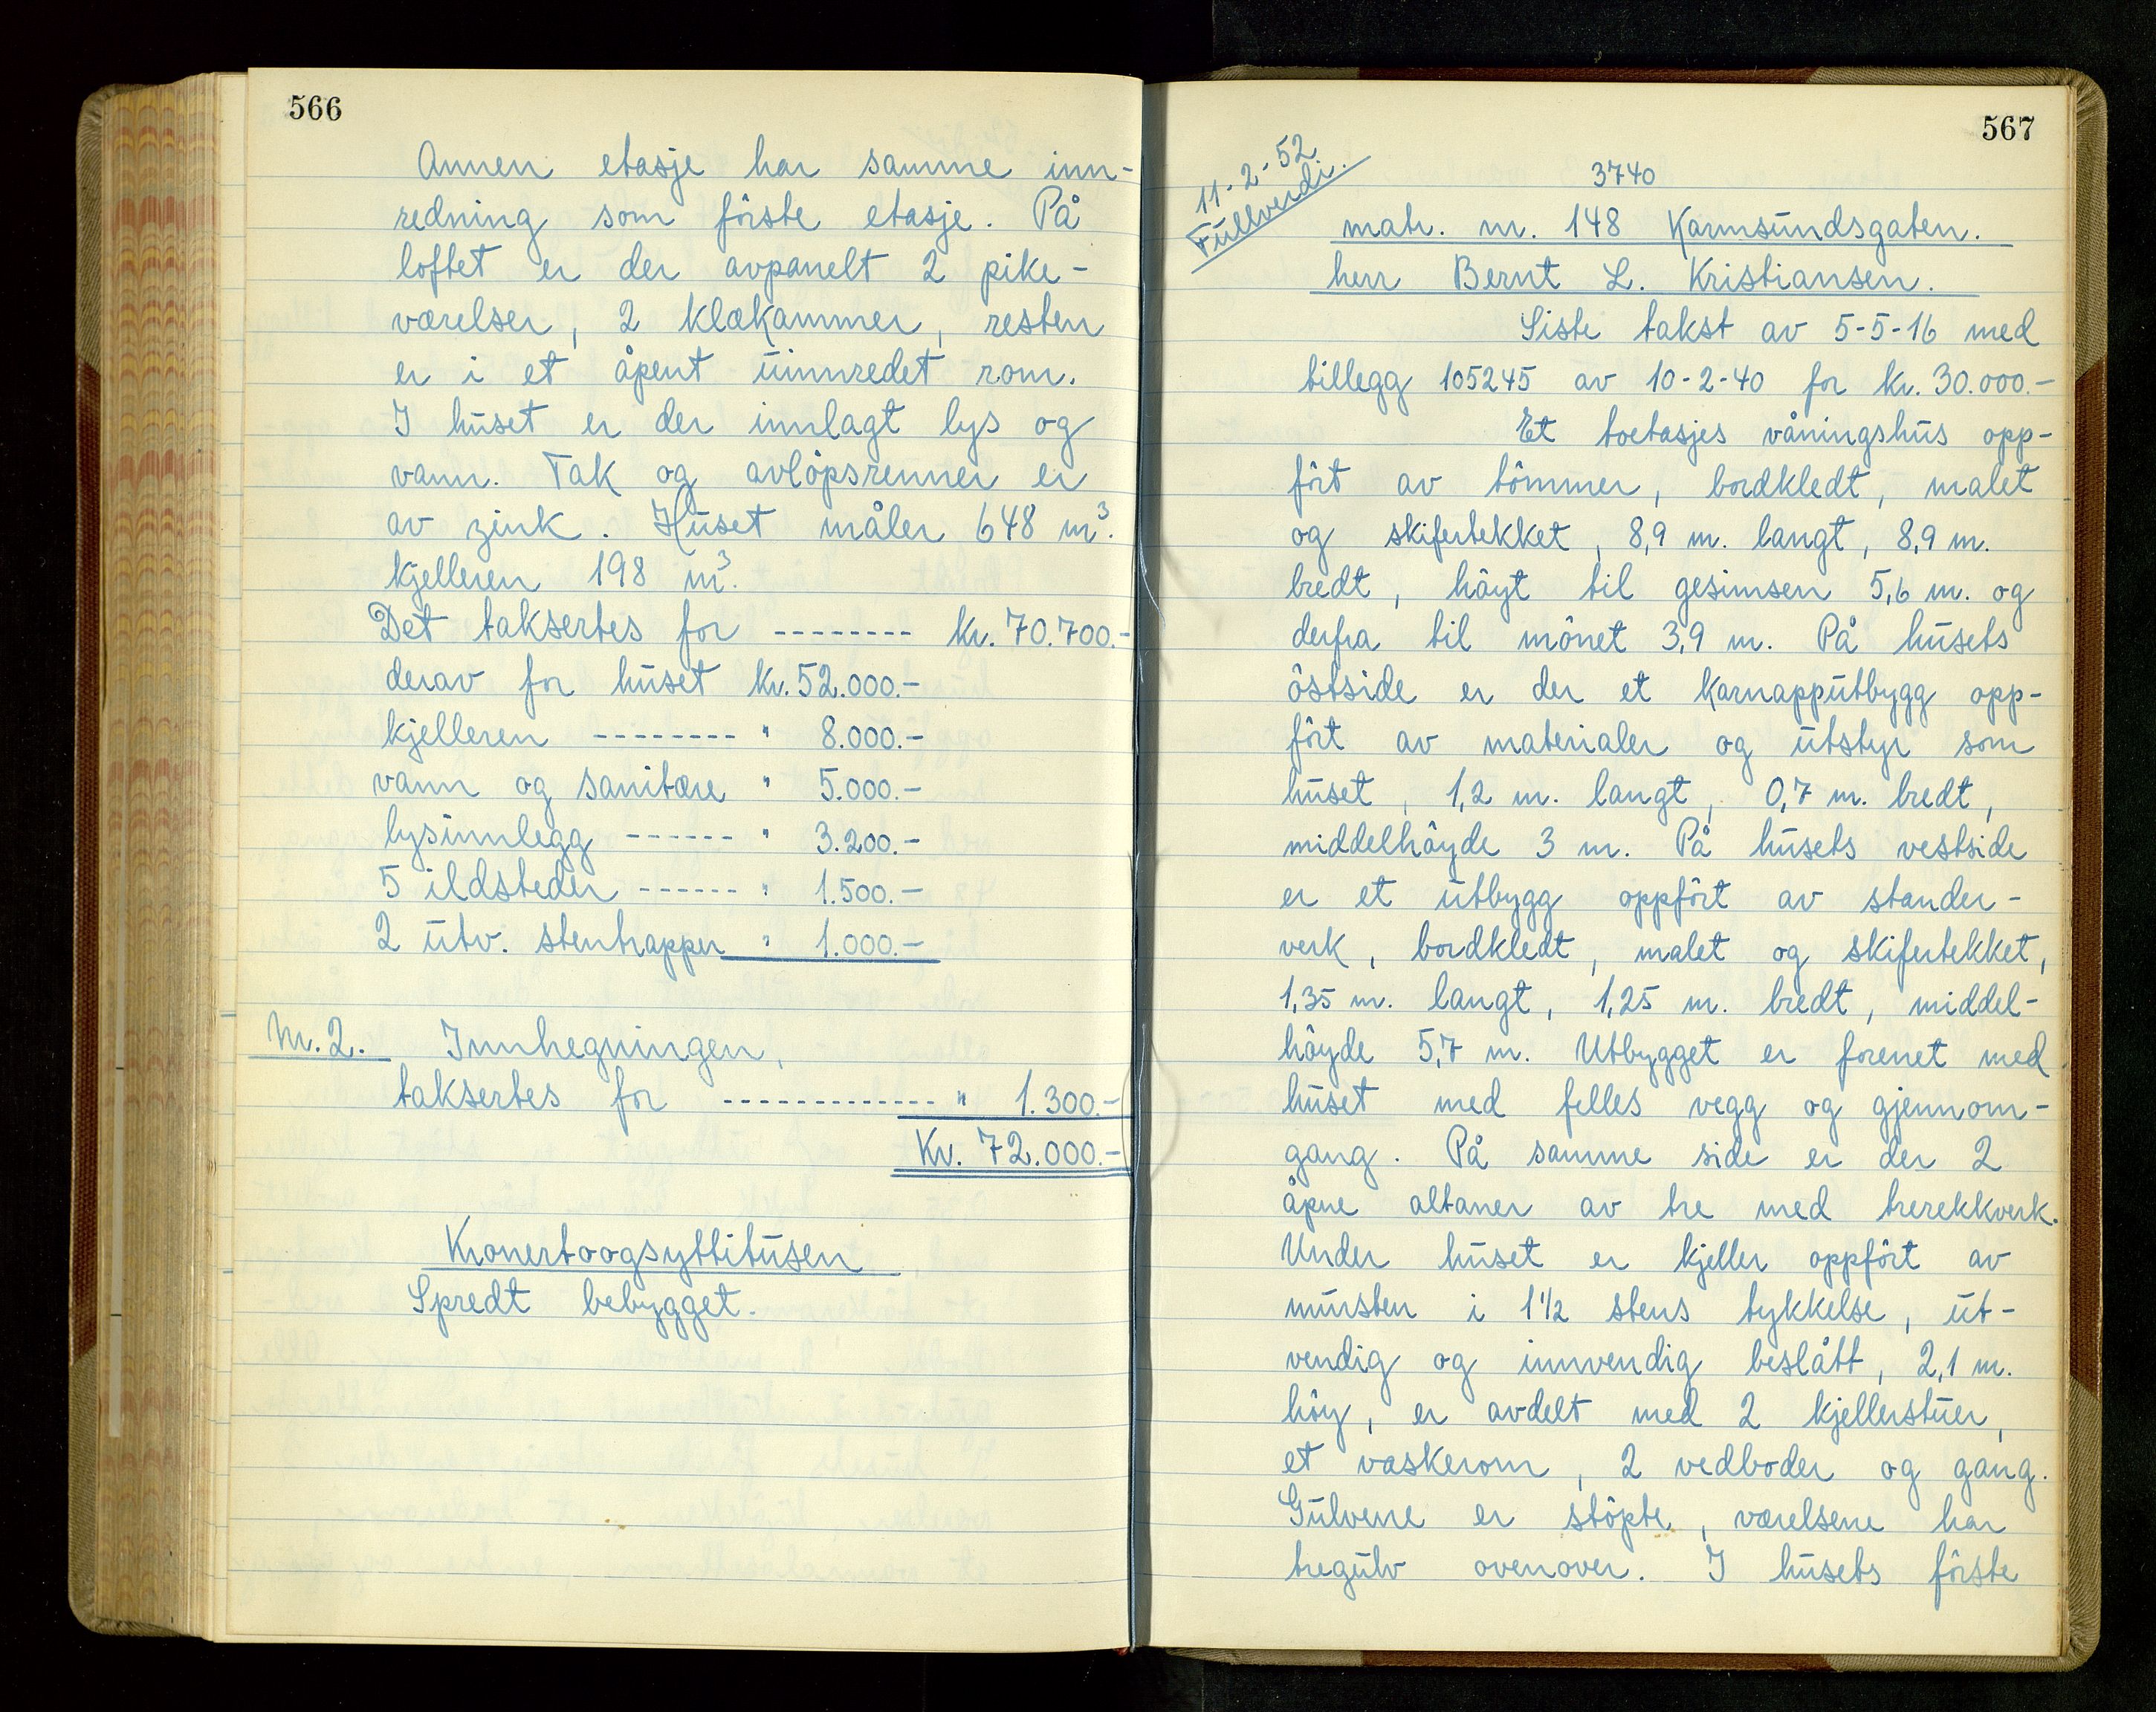 566
Annen etasje har samme inn-
redning som förste etasje. På
loftet er der avpanelt 2 pike-
værelser, 2 klækammer, resten
er i et åpent uinnredet rom.
I huset er der innlagt lys og
vann. Tak og avlöpsrenner er
av zink. Huset måler 648 m³.
kjelleren 198 m³.
Det taksertes for -------- kr. 70.700.-
derav for huset kr. 52.000.-
kjelleren -------- " 8.000.-
vann og sanitære " 5.000.-
lysinnlegg ------ " 3.200.-
5 ildsteder ------ " 1.500.-
2 utv. stentrapper " 1.000.-
Nr. 2. Innhegningen,
taksertes for ------------- " 1.300.-
Kr. 72.000.-
Kronertoogsyttitusen
Spredt bebygget.
567
11-2-52
Fullverdi.
3740
matr. nr. 148 Karmsundsgaten.
herr Bernt L. Kristiansen.
Siste takst av 5-5-16 med
tillegg 105245 av 10-2-40 for kr. 30.000.-
Et toetasjes våningshus opp-
fört av tömmer, bordkledt, malet
og skifertekket, 8,9 m. langt, 8,9 m.
bredt, höyt til gesimsen 5,6 m. og
derfra til mönet 3,9 m. På husets
östside er der et karnapputbygg opp-
fört av materialer og utstyr som
huset, 1,2 m. langt, 0,7 m. bredt,
middelhöyde 3 m. På husets vestside
er et utbygg oppfört av stander-
verk, bordkledt, malet og skifertekket,
1,35 m. langt, 1,25 m. bredt, middel-
höyde 5,7 m. Utbygget er forenet med
huset med felles vegg og gjennom-
gang. På samme side er der 2
åpne altaner av tre med trerekkverk.
Under huset er kjeller oppfört av
mursten i 1½ stens tykkelse, ut-
vendig og innvendig beslått, 2,1 m.
höy, er avdelt med 2 kjellerstuer,
et vaskerom, 2 vedboder og gang.
Gulvene er stöpte, værelsene har
tregulv ovenover. I husets förste